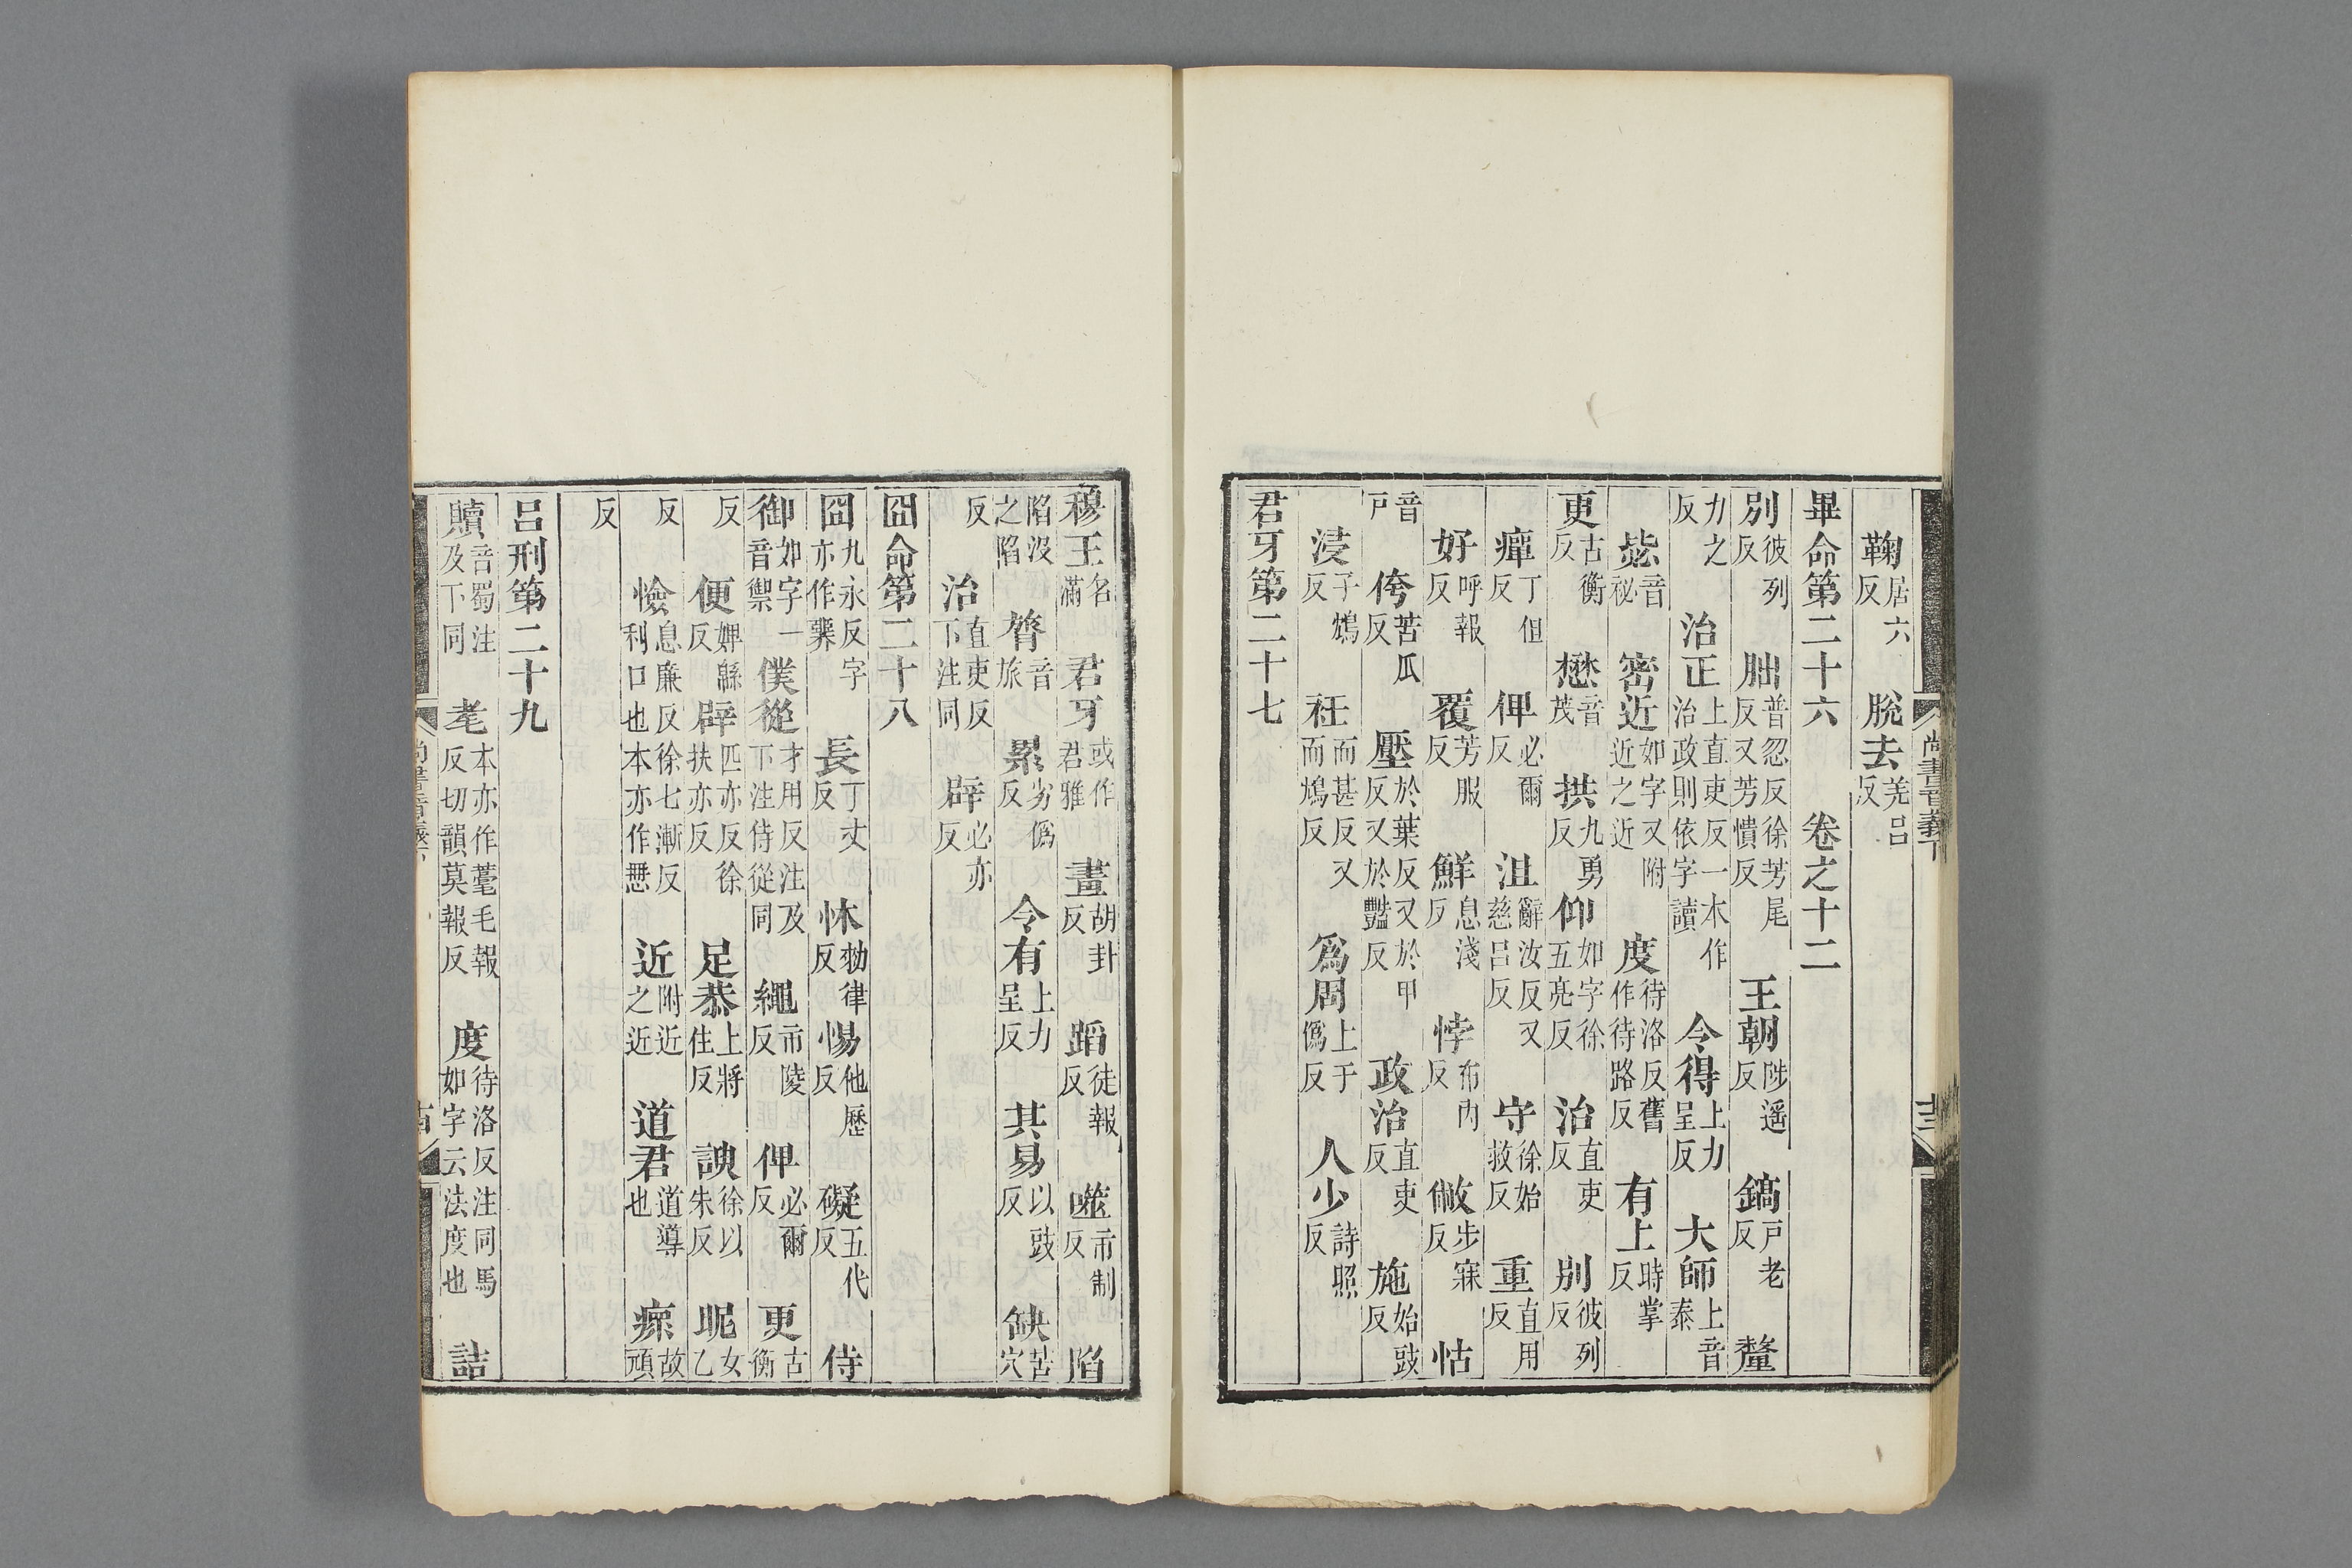 鞠居六反　脫去羌呂反
畢命第二十六　卷之十二
別彼列反　朏普忽反徐芳尾反又芳憒反　王朝陟遥反　鎬戸老反　釐
力之反　治正上直吏反一本作治政則依字讀　令得上力呈反　大師上音泰
毖音祕　密近如字又附近之近　度待洛反舊作待路反　有上時掌反
更古衡反　懋音茂　拱九勇反　仰如字徐五亮反　治直吏反　別彼列反
癉丁但反　俾必爾反　沮辭汝反又慈呂反　守徐始救反　重直用反
好呼報反　覆芳服反　鮮息淺反　悖布内反　敝步寐反　怙
音戸　侉苦瓜反　壓於葉反又於甲反又於豔反　政治直吏反　施始豉反
浸子鴆反　衽而甚反又而鴆反　爲周上于僞反　人少詩照反
君牙第二十七
穆王名滿　君牙或作君雅　畫胡卦反　蹈徒報反　噬市制反　陷
陷没之陷　膂音旅　累劣僞反　令有上力呈反　其易以豉反　缺苦穴
反　治直吏反下注同　辟必亦反
冏命第二十八
冏九永反字亦作煛　長丁丈反　怵勑律反　惕他歷反　礙五代反　侍
御如字一音禦　僕從才用反注及下注侍從同　繩市陵反　俾必爾反　更古衡
反　便婢緜反　辟匹亦反徐扶亦反　足恭上將住反　諛徐以朱反　昵女乙
反　憸息廉反徐七漸反利口也本亦作㦓　近附近之近　道君道導也　瘝故頑
反
呂刑第二十九
贖音蜀注及下同　耄本亦作薹毛報反切韻莫報反　度待洛反注同馬如字云法度也　詰
尚書音義下